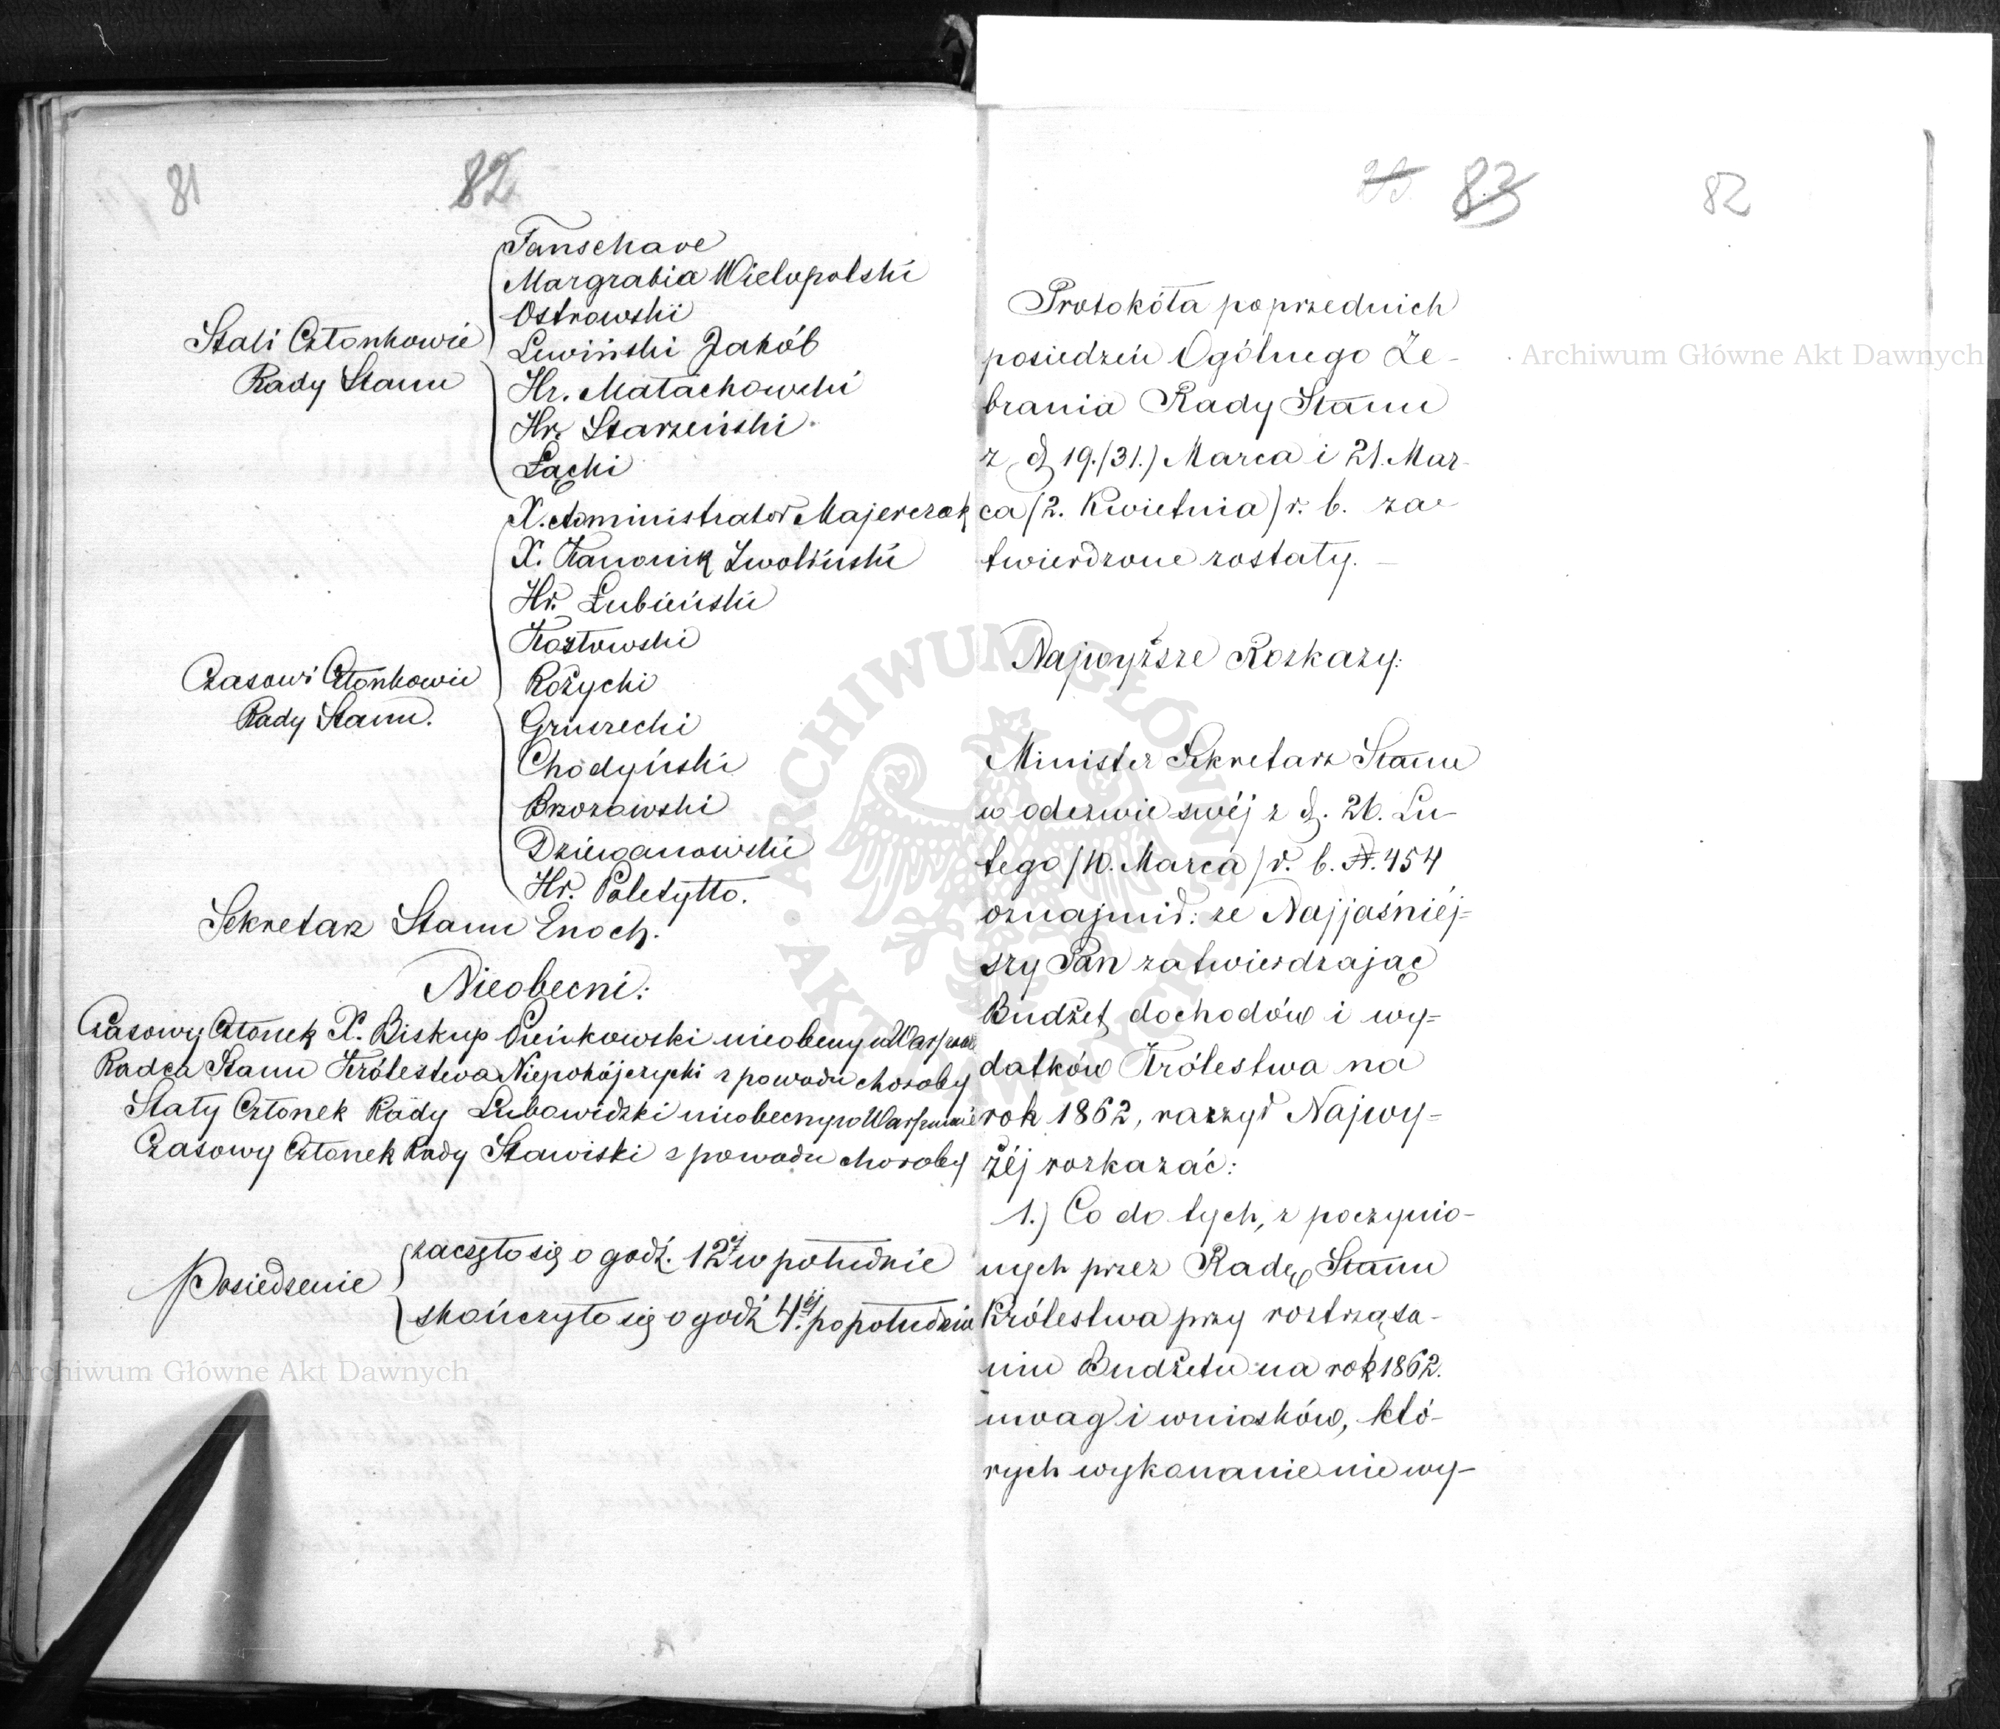 81
82
Fanschave
Margrabia Wielopolski
Ostrowski
Stali Członkowie
Lewiński Jakób
Rady Stanu
Hr. Małachowski
Hr. Starzeński
Łącki
X. Administrator Majerczak
X. Kanonik Zwoliński
Hr. Łubieński
Kozłowski
Czasowi Członkowie
Różycki
Rady Stanu.
Gruszecki
Chodyński
Brzozowski
Dzierzanowski
Hr. Poletyłło.
Sekretarz Stanu Enoch.
Nieobecni:
Czasowy Członek X. Biskup Pieńkowski nieobecny w Warszawie
Radca Stanu Królestwa Niepokójczycki z powodu choroby
Stały Członek Rady Lubowidzki nieobecny w Warszawie
Czasowy Członek Rady Stawiski z powodu choroby
Posiedzenie
zaczęło się o godź. 12ej w południe
skończyło się o godź 4ej popołudniu
Archiwum Główne Akt Dawnych
83
82
Protokóła poprzednich
posiedzeń Ogólnego Ze-
brania Rady Stanu
z d. 19./31.) Marca i 21. Mar-
ca /2. Kwietnia) r. b. za-
twierdzone zostały. —
Najwyższe Rozkazy:
Minister Sekretarz Stanu
w odezwie swéj z d. 26. Lu-
tego /10. Marca) r. b. N. 454
oznajmił: że Najjaśniéj-
szy Pan zatwierdzając
Budżet dochodów i wy-
datków Królestwa na
rok 1862, raczył Najwy-
żéj rozkazać:
1.) Co do tych, z poczynio-
nych przez Radę Stanu
Królestwa przy roztrząsa-
niu Budżetu na rok 1862.
uwag i wniosków, któ-
rych wykonanie nie wy-
Archiwum Główne Akt Dawnych
ARCHIWUM GŁÓWNE AKT DAWNYCH